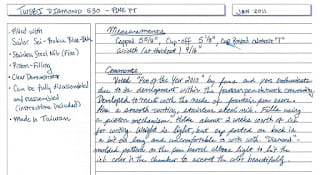 TWSBI DIAMOND 530 - FINE PT
JAN 2011
• Filled with
Sailor Sei-Boku Blue-Black
• Stainless Steel Nib (Fine)
• Piston-Filling
• Clear Demonstrator
• Can be fully disassembled
and reassembled
(instructions included)
• Made in Taiwan
Measurements
Capped 5 5/8", Cap-off 5 1/8", Cap Posted almost 7"
Width (at thickest) 9/16"
Comments
Voted "Pen of the Year 2010" by fans and pen enthusiasts
due to its development within the fountain pen network community.
Developed to meet with the needs of fountain pen users.
Has a smooth writing, stainless steel nib. Fills using
a piston mechanism. Holds about 2 weeks worth of ink
for writing. Weight is light, but cap posted on back is
a bit too long and uncomfortable to write with. "Diamond"-
molded pattern on the pen barrel allows light to hit the
ink color in the chamber to accent the color beautifully.